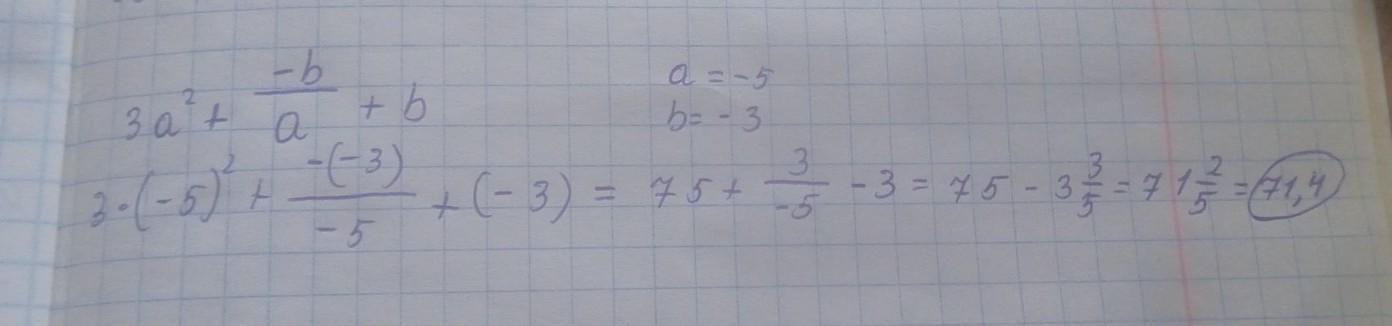 3a² + -b/a + b
a = -5
b = -3
3·(-5)² + -(-3)/-5 + (-3) = 75 + 3/-5 - 3 = 75 - 3 3/5 = 71 2/5 = 71,4